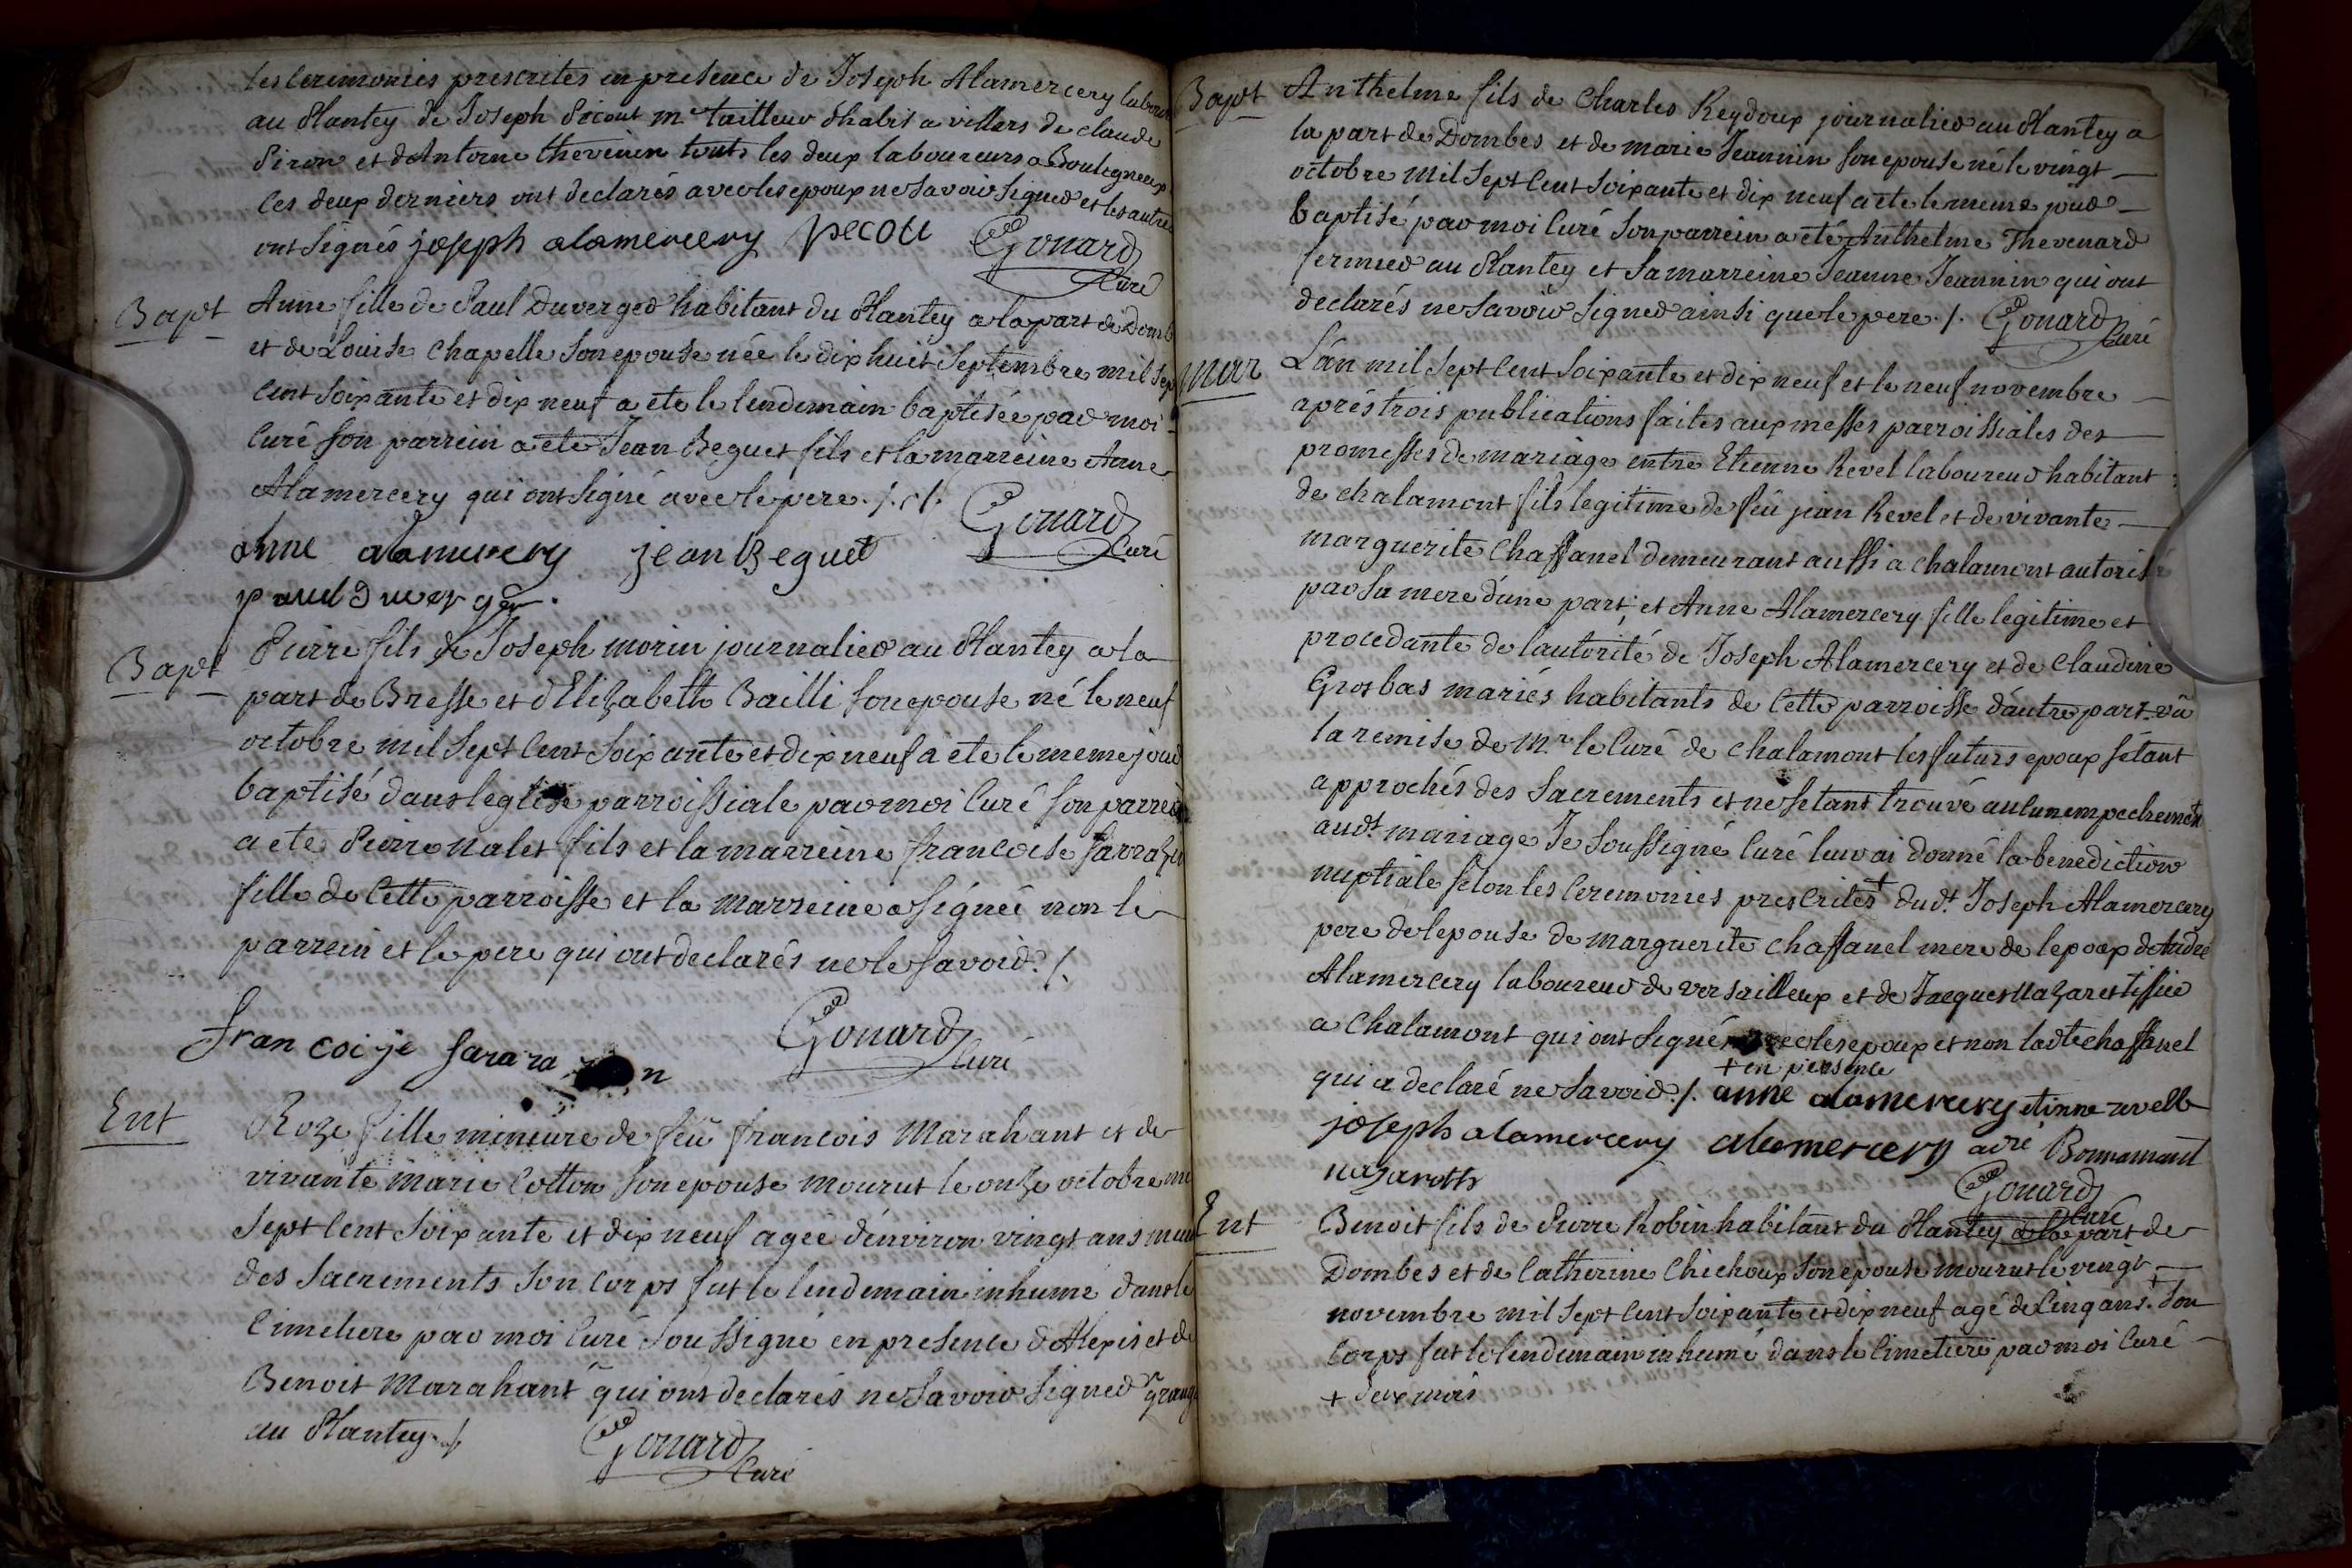 les Ceremonies prescrites en presence de Joseph Alamercery labour
au Plantey de Joseph Picout me tailleur d'habit a villars de claude
Piron et d'Antoine thevenin touts les deux laboureurs a Bouligneux
Ces deux derniers ont declarés avec les epoux ne savoir signer et les autres
ont signés joseph alamercery pecou Gouard
Curé
Bapt Anne fille de Paul Duverger habitant du Plantey a la part de Domb
et de Louise Chapelle son epouse née le dix huit Septembre mil sep
cent soixante et dix neuf a ete le lendemain baptisée par moi
Curé son parrein a ete Jean Beguet fils et la marreine Anne
Alamercery qui ont signé avec le pere ./. ./. Gouard
Curé
anne alamercery jean Beguet
paul Duverger.
Bapt Pierre fils de Joseph morin journalier au Plantey a la
part de Bresse et d'Elizabeth Bailli son epouse né le neuf
octobre mil sept Cent soixante et dix neuf a ete le meme jour
baptisé dans l'eglise parroissiale par moi Curé son parrein
a ete Pierre Nalet fils et la marreine francoise Sarrazin
fille de Cette parroisse et la marreine a signée non le
parrein et le pere qui ont declarés ne le savoir ./.
francoise Gouard
Curé
Ent Roze fille mineure de feu francois Marahant et de
vivante Marie Cotton son epouse mourut le onze octobre mil
sept Cent soixante et dix neuf agée d'environ vingt ans muni
des Sacrements son Corps fut le lendemain inhumé dans le
Cimetiere par moi Curé soussigné en presence d'Alexis et de
Benoit Marahant qui ont declarés ne savoir signer grang
au Plantey ./. Gouard
Curé
Bapt Anthelme fils de Charles Reydoux journalier au Plantey a
la part de Dombes et de marie Jeannin son epouse né le vingt
octobre mil sept Cent soixante et dix neuf a ete le meme jour
baptisé par moi Curé son parrein a eté Anthelme Thevenard
fermier au Plantey et sa marreine Jeanne Jeannin qui ont
declarés ne savoir signer ainsi que le pere ./. Gouard
Curé
Mar L'an mil sept Cent soixante et dix neuf et le neuf novembre
aprés trois publications faites aux messes parroissiales des
promesses de mariage entre Etienne Revel laboureur habitant
de chalamont fils legitime de feu jean Revel et de vivante
marguerite Chassanel demeurant aussi a chalamont autorisé
par sa mere d'une part; et Anne Alamercery fille legitime et
procedante de l'autorité de Joseph Alamercery et de Claudine
Grosbas mariés habitants de Cette parroisse d'autre part. vû
la remise de Mr le Curé de Chalamont les futurs epoux s'étant
approchés des Sacrements et ne s'etant trouvé aucun empechement
audt mariage Je soussigné Curé leur ai donné la benediction
nuptiale selon les Ceremonies prescrites + dudt Joseph Alamercery
pere de l'epouse de marguerite chassanel mere de l'epoux d'André
Alamercery laboureur de versailleux et de Jacques Nazaret tissier
a Chalamont qui ont signé avec les epoux et non ladte chassanel
+ en presence
qui a declaré ne savoir ./. anne alamercery etienne revelle
joseph alamercery alamercery Bonnamant
nazareth Gouard
Curé
Ent Benoit fils de Pierre Robin habitant du Plantey a la part de
Dombes et de Catherine Chichoux son epouse mourut le vingt
novembre mil sept Cent soixante et dix neuf agé de Cinq ans + son
Corps fut le lendemain inhumé dans le Cimetiere par moi Curé
+ deux mois